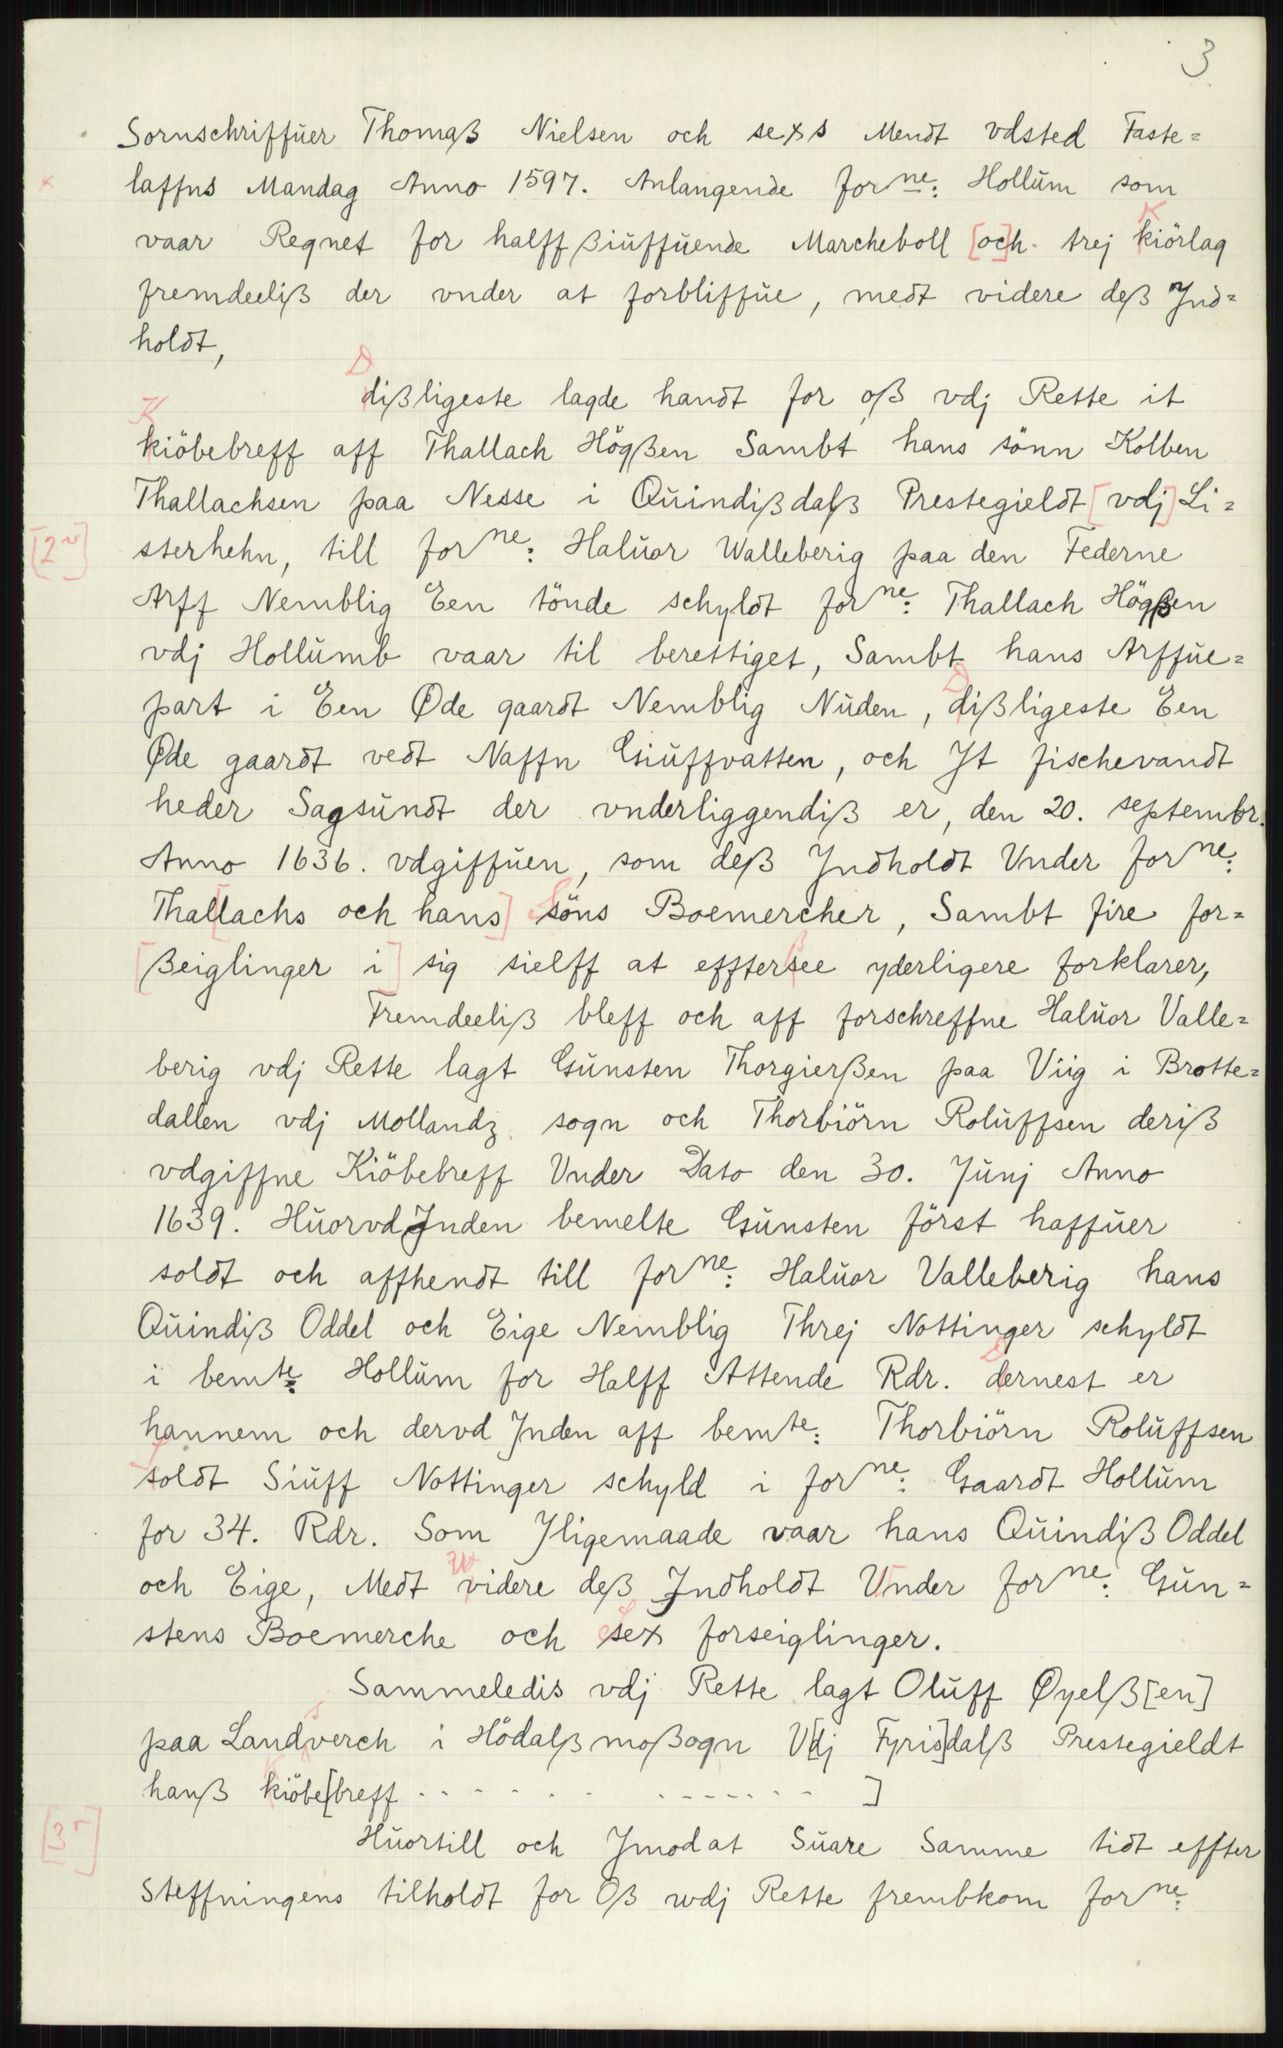 3
Sornschriffuer Thomaß Nielsen och sexs Mendt vdsted Faste=
laffns Mandag Anno 1597. Anlangende forne: Hollum som
vaar Regnet for halff ßiuffuende Marcheboll [oc]h trej kiörlag
fremdeeliß der vnder at forbliffue, medt videre deß Ind=
holdt,
dißligeste lagde handt for oß vdj Rette it
kiöbebreff aff Thallach Högßen Sambt hans sönn Kolben
Thallachsen paa Nesse i Quindißdalß Prestegieldt [vdj] Li=
[2v] sterhehn, till forne: Haluor Walleberig paa den Federne
Arff Nemblig Een tönde schyldt forne: Thallach Högßen
vdj Hollumb vaar til berettiget, Sambt hans Arffue=
part i Een Øde gaardt Nemblig Nuden, dißligeste Een
Øde gaardt vedt Naffn Giuffvatten, och It fischevandt
heder Sagsundt der vnderliggendiß er, den 20. septembr.
Anno 1636. vdgiffuen, som deß Indholdt Vnder forne:
Thal[lachs och hans] söns Boemercher, Sambt fire for=
[ßeiglinger i] sig sielff at efftersee yderligere forklarer,
Fremdeeliß bleff och aff forschreffne Haluor Valle=
berig vdj Rette lagt Gunsten Thorgierßen paa Viig i Brotte=
dallen vdj Mollandz sogn och Thorbiörn Roluffsen deriß
vdgiffne Kiöbebreff Vnder Dato den 30. Junj Anno
1639. Huorvd Inden bemelte Gunsten först haffuer
soldt och affhendt till forne: Haluor Valleberig hans
Quindiß Oddel och Eige Nemblig Threj Nottinger schyldt
i bemte: Hollum for Halff Attende Rdr. dernest er
hannem och dervd Inden aff bemte: Thorbiörn Roluffsen
soldt Siuff Nottinger schyld i forne: Gaardt Hollum
for 34. Rdr. Som Iligemaade vaar hans Quindiß Oddel
och Eige, Medt videre deß Indholdt Vnder forne: Gun=
stens Boemerche och sex forseiglinger.
Sammeledis vdj Rette lagt Oluff Øyelß[en]
paa Landverch i Hödalß moßogn V[dj Fyris]dalß Prestegieldt
hanß kiöbe[breff . - - - - . . - - - - - - ]
[3r] Huortill och Imod at Suare Samme tidt effter
Steffningens tilholdt for Oß wdj Rette frembkom forne: